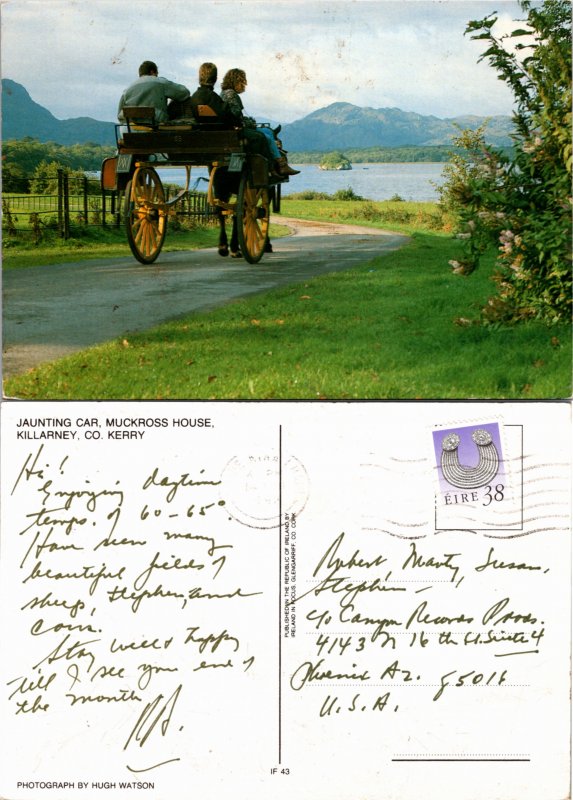 JAUNTING CAR, MUCKROSS HOUSE,
KILLARNEY, CO. KERRY
Hi!
Enjoying daytime
temps. of 60-65°.
Have seen many
beautiful fields of
sheep, Stephen, and
corn.
Stay well & happy
till I see you end of
the month
PHOTOGRAPH BY HUGH WATSON
PUBLISHED IN THE REPUBLIC OF IRELAND BY
IRELAND IN FOCUS, GLENGARRIFF CO. CORK
IF 43
ÉIRE 38
Robert, Marty, Susan,
Stephen -
c/o Canyon Records Prods.
4143 N 16th St. Suite 4
Phoenix Az. 85016
U.S.A.